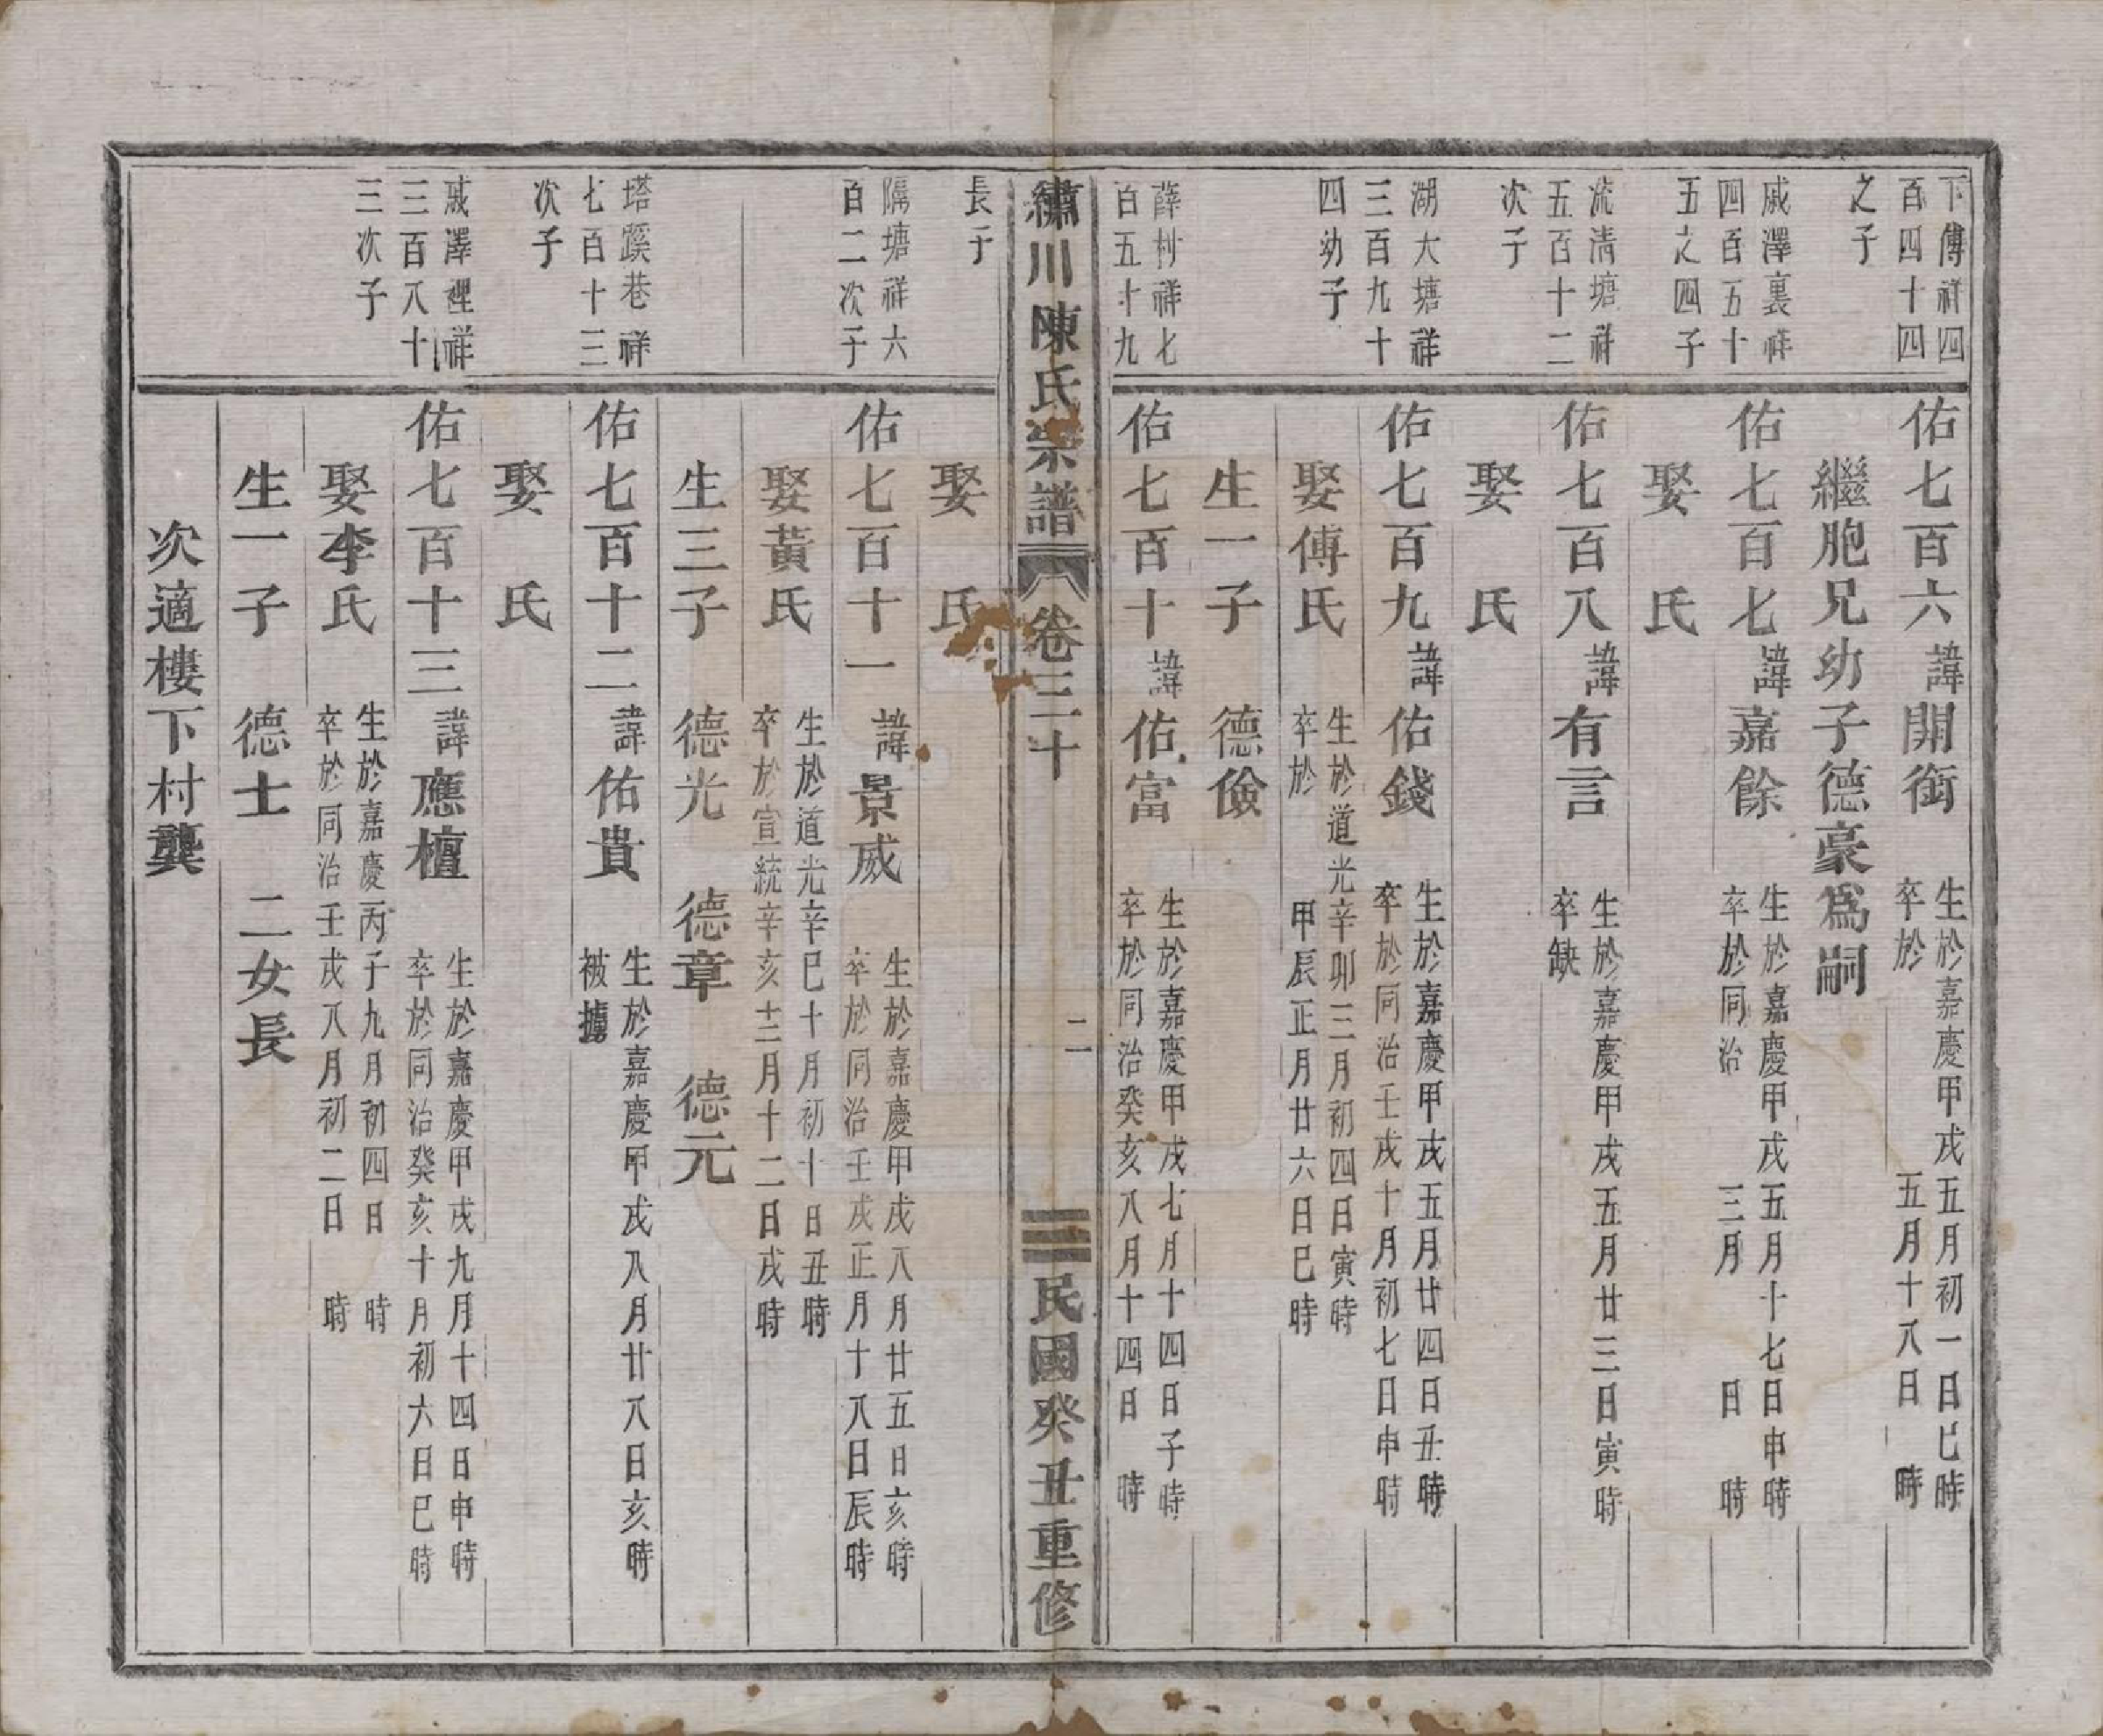 下傅祥四
百四十四
之子
戚澤裏祥
四百五十
五之四子
流清塘祥
五百十二
次子
湖大塘祥
三百九十
四幼子
薛村祥七
百五十九
佑七百六 諱開銜
生於嘉慶甲戌五月初一日巳時
卒於 五月十八日 時
繼胞兄幼子德豪爲嗣
佑七百七 諱嘉餘
生於嘉慶甲戌五月十七日申時
卒於同治 三月 日 時
娶 氏
佑七百八 諱有言
生於嘉慶甲戌五月廿三日寅時
卒缺
娶 氏
佑七百九 諱佑錢
生於嘉慶甲戌五月廿四日丑時
卒於同治壬戌十月初七日申時
娶傅氏
生於道光辛卯三月初四日寅時
卒於 甲辰正月廿六日巳時
生一子 德儉
佑七百十 諱佑富
生於嘉慶甲戌七月十四日子時
卒於同治癸亥八月十四日 時
繡川陳氏宗譜 卷三十 二 民國癸丑重修
長子
隔塘祥六
百二次子
塔蹊巷祥
七百十三
次子
戚澤裡祥
三百八十
三次子
娶 氏
佑七百十一 諱景威
生於嘉慶甲戌八月廿五日亥時
卒於同治壬戌正月十八日辰時
娶黃氏
生於道光辛巳十月初十日丑時
卒於宣統辛亥十二月十二日戌時
生三子 德光 德章 德元
佑七百十二 諱佑貴
生於嘉慶甲戌八月廿八日亥時
被擄
娶 氏
佑七百十三 諱應檀
生於嘉慶甲戌九月十四日申時
卒於同治癸亥十月初六日巳時
娶李氏
生於嘉慶丙子九月初四日 時
卒於同治壬戌八月初二日 時
生一子 德士 二女長
次適樓下村龔